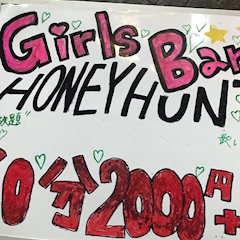 Girls Bar
HONEY HUN
放題
歌い
0分2000円+